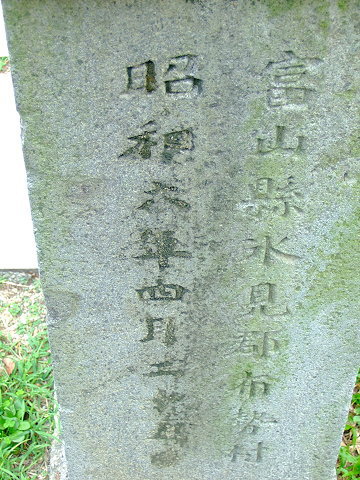 富山縣氷見郡布勢村
昭和六年四月